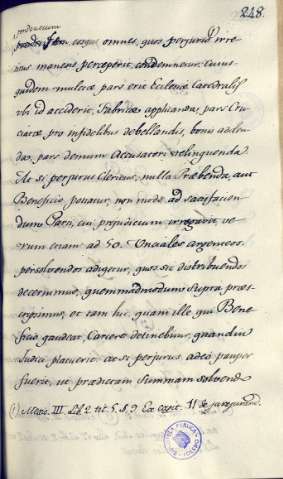 248.
condemnum
eosque omnes, quos perjurio irre-
titus manens perceperit, condemnetur. Cuius
quidem mulctæ pars erit Ecclesiæ Catedralis
ubi id acciderit, Fabricæ applicanda, pars Cru-
ciatæ pro infidelibus debellandis, bona adden-
das, pars demum Accusatori relinquenda
At si perjurus Clericus, nulla Præbenda, aut
Beneficio, ponatur, non modo ad satisfacien-
dum Parti, cui præjudicium irrogavit, ve-
rum etiam ad 50. Unciales argenteos
persolvendos adigetur, quos sic distribuendos
decernimus, quemmadmodum supra præs-
cripsimus, et tam hic, quam ille qui Bene-
ficio gaudeat, Carcere detinebitur, quandiu
Judici placuerit: at si perjurus adeo pauper
fuerit, ut prædictam summam solvend
(1) Mexic. III. Lib. 2 tit. 5. § 9. Ex cogit. 11 de jurejurand.